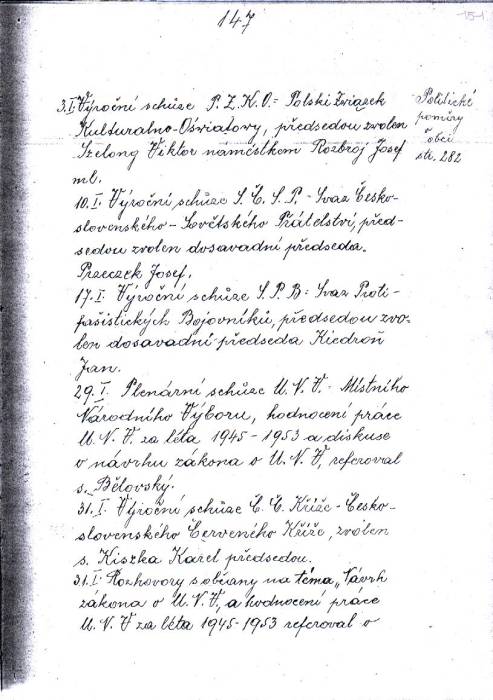 147
151
3.I. Výroční schůze P.Z.K.O.= Polski Związek
Kulturalno-Oświatowy, předsedou zvolen
Szelong Viktor náměstkem Rozbroj Josef
ml.
Politické
poměry
obci
str. 282
10.I. Výroční schůze S.Č.S.P.- Svaz Česko-
slovenského - Sovětského Přátelství, před-
sedou zvolen dosavadní předseda.
Przeczek Josef.
17.I. Výroční schůze S.P.B = Svaz Proti-
fašistických Bojovníků, předsedou zvo-
len dosavadní předseda Kiedroń
Jan.
29.I. Plenární schůze M.N.V.- Místního
Národního Výboru, hodnocení práce
M.N.V. za léta 1945-1953 a diskuse
o návrhu zákona o M.N.V, referoval
s. Bělovský.
31.I. Výroční schůze Č.Č. Kříže - Česko-
slovenského Červeného Kříže, zvolen
s. Kiszka Karel předsedou.
31.I. Rozhovory s občany na téma „Návrh
zákona o M.N.V, a hodnocení práce
M.N.V za léta 1945-1953 referoval o